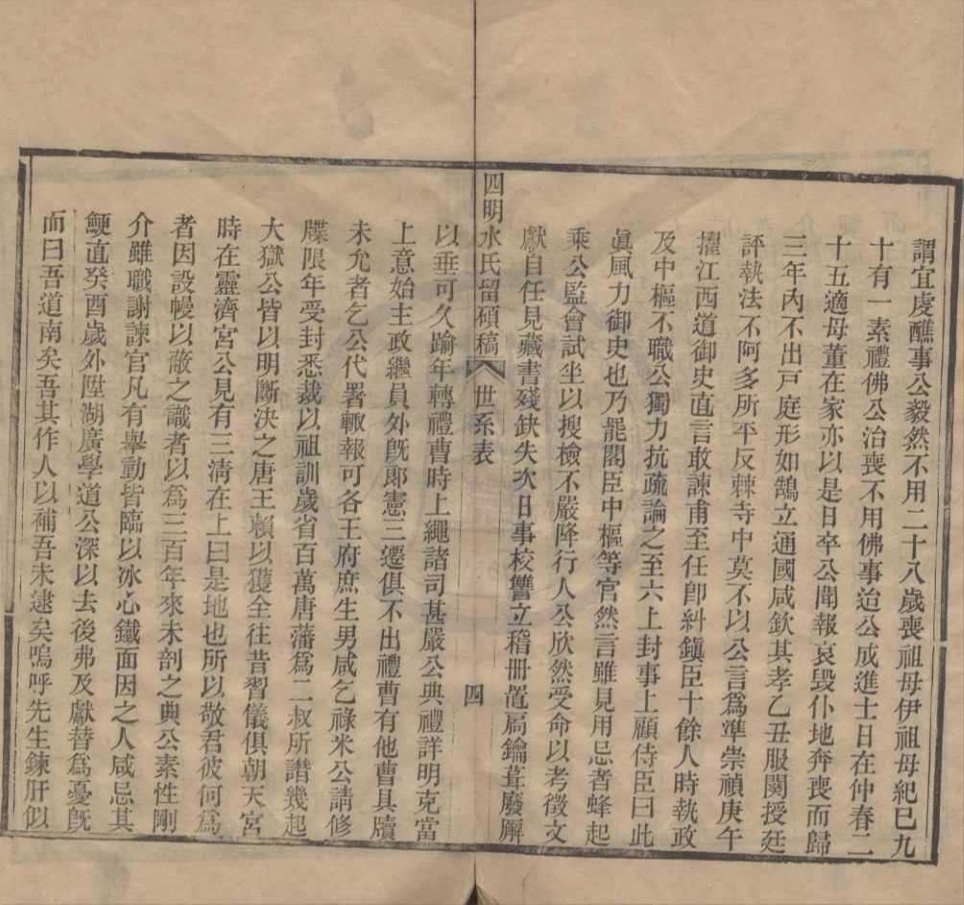 謂宜虔醮事公毅然不用二十八歲喪祖母伊祖母紀已九
十有一素禮佛公治喪不用佛事迨公成進士日在仲春二
十五適母董在家亦以是日卒公聞報哀毀仆地奔喪而歸
三年內不出戸庭形如鵠立通國咸欽其孝乙丑服闋授廷
評執法不阿多所平反棘寺中莫不以公言爲準崇禎庚午
擢江西道御史直言敢諫甫至任卽糾鎭臣十餘人時執政
及中樞不職公獨力抗疏論之至六上封事上顧侍臣曰此
眞風力御史也乃罷閣臣中樞等官然言雖見用忌者蜂起
乘公監會試坐以搜檢不嚴降行人公欣然受命以考徵文
獻自任見藏書殘缺失次日事校讐立稽冊置扃鑰葺廢廨
四明水氏留碩稿 世系表 四
以垂可久踰年轉禮曹時上繩諸司甚嚴公典禮詳明克當
上意始主政繼員外旣郞憲三遷俱不出禮曹有他曹具牘
未允者乞公代署輙報可各王府庶生男咸乞祿米公請修
牒限年受封悉裁以祖訓歲省百萬唐藩爲二叔所譖幾起
大獄公皆以明斷決之唐王賴以獲全往昔習儀俱朝天宮
時在靈濟宮公見有三淸在上曰是地也所以敬君彼何爲
者因設幔以蔽之識者以爲三百年來未剖之典公素性剛
介雖職謝諫官凡有舉動皆臨以冰心鐵面因之人咸忌其
鯁直癸酉歲外陞湖廣學道公深以去後弗及獻替爲憂旣
而曰吾道南矣吾其作人以補吾未逮矣嗚呼先生鍊肝似